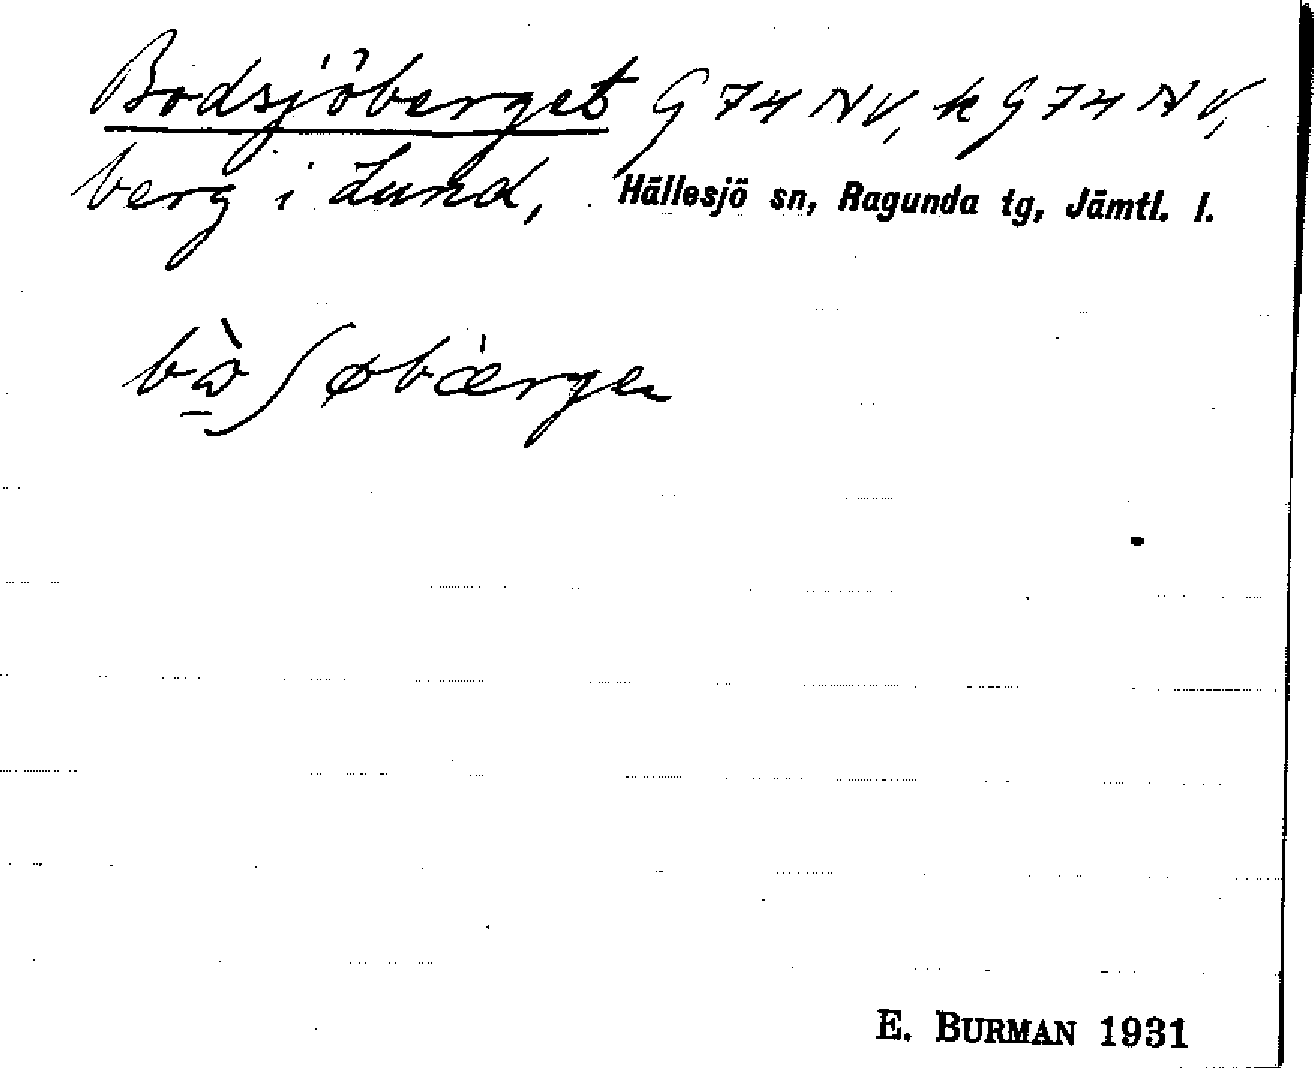 Bodsjöberget G 74 NV, k G 74 NV,
berg i Lund, Hällesjö sn, Ragunda tg, Jämtl. l.
E. BURMAN 1931